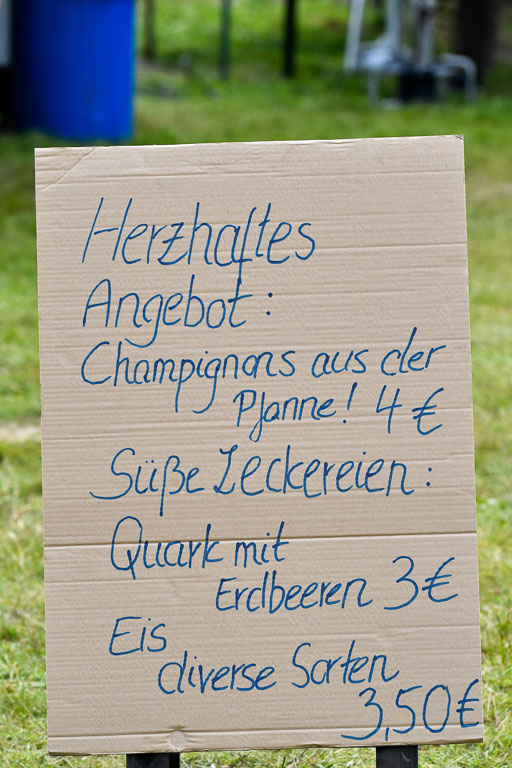 Herzhaftes
Angebot:
Champignons aus der
Pfanne! 4 €
Süße Leckereien:
Quark mit
Erdbeeren 3€
Eis
diverse Sorten
3,50€